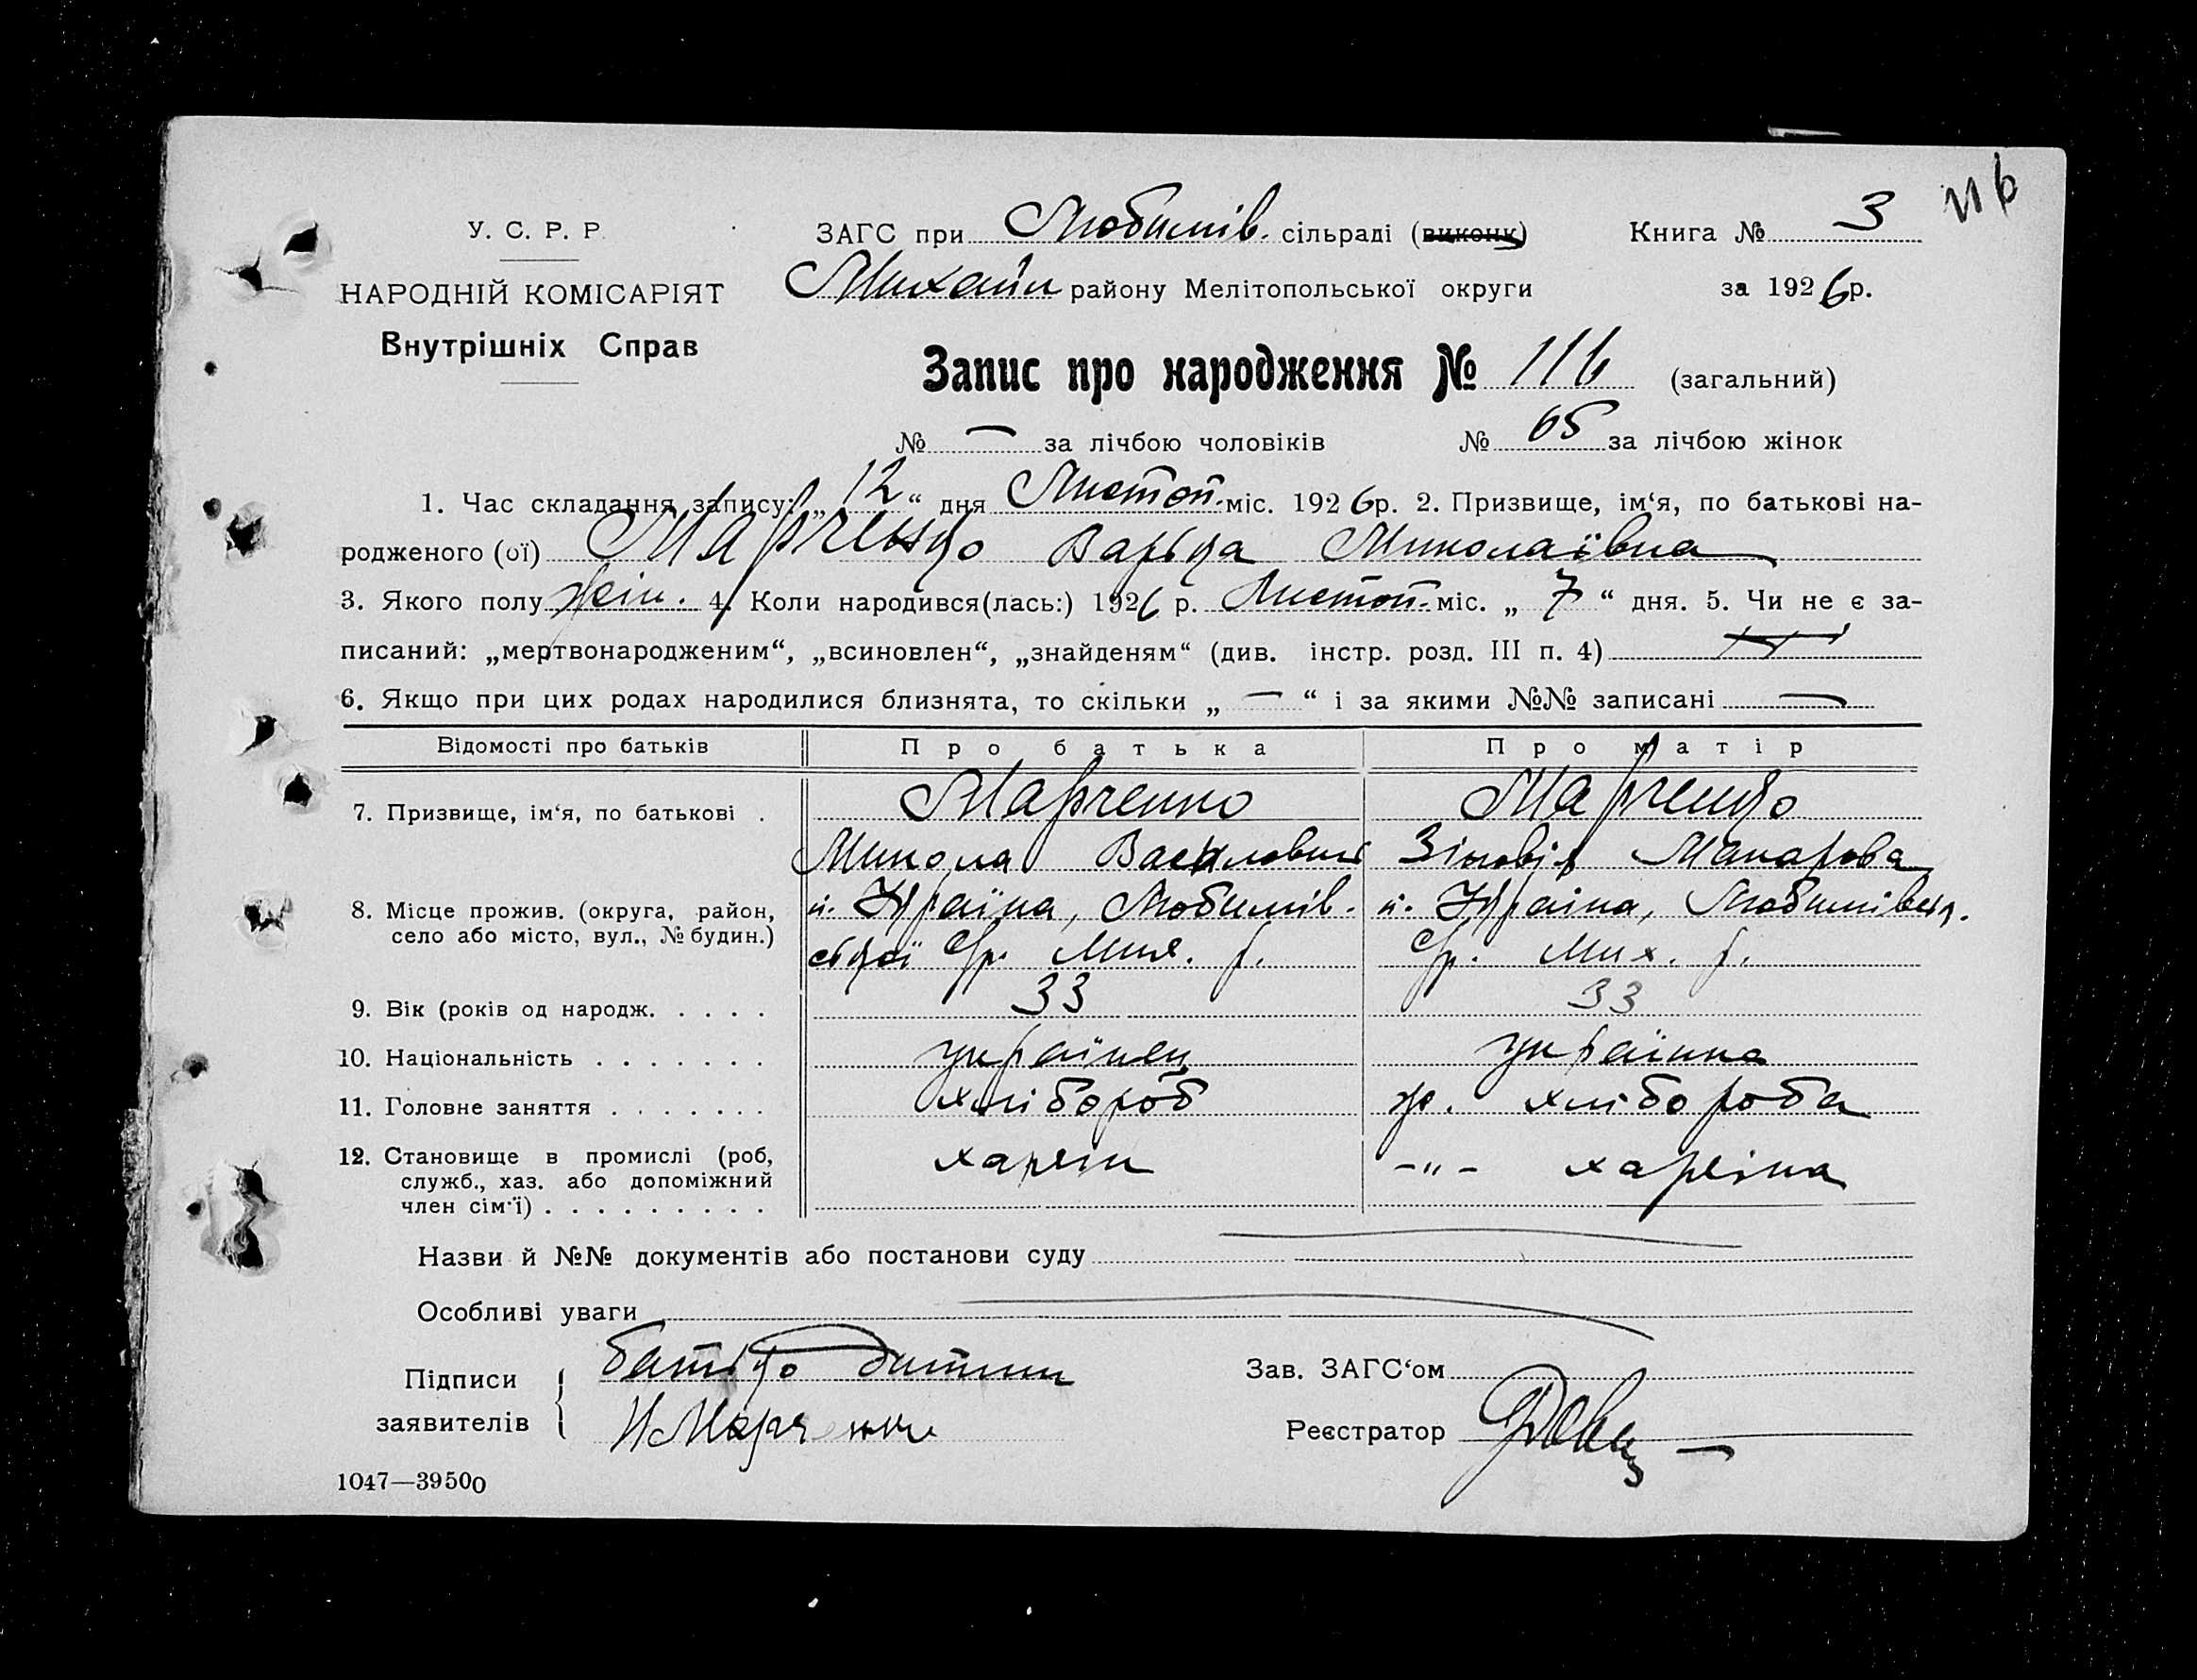 116
У. С. Р. Р.
НАРОДНІЙ КОМІСАРІЯТ
Внутрішніх Справ
ЗАГС при Любимів. сільраді (виконк) Книга № 3
Михайл району Мелітопольської округи за 1926 р.
Запис про народження № 116 (загальний)
№ — за лічбою чоловіків № 65 за лічбою жінок
1. Час складання запису: „ 12 “ дня Листоп. міс. 1926 р. 2. Призвище, ім‘я, по батькові на-
родженого (ої) Марченко Варька Миколаївна
3. Якого полу жін. 4. Коли народився(лась:) 1926 р. Листоп. міс. „ 7 “ дня. 5. Чи не є за-
писаний: „мертвонародженим“, „всиновлен“, „знайденям“ (див. інстр. розд. III п. 4)
6. Якщо при цих родах народилися близнята, то скільки „ — “ і за якими №№ записані —
Відомості про батьків Про батька Про матір
7. Призвище, ім‘я, по батькові . Марченко Марченко
Микола Василович Зіновія Макарова
8. Місце прожив. (округа, район, село або місто, вул., № будин.) Україна, Любимів- Україна, Любимівськ.
ської с/р. Мих. р. с/р. Мих. р.
9. Вік (років од народж. . . . . 33 33
10. Національність . . . . . . . українец українка
11. Головне заняття . . . . . . . хлібороб ж. хлібороба
12. Становище в промислі (роб, служб., хаз. або допоміжний член сім‘ї) . . . . . . . . . хазяїн -"- хазяїна
Назви й №№ документів або постанови суду
Особливі уваги
Підписи заявителів батько дитини
Н Марченко
Зав. ЗАГС‘ом
Реєстратор
1047—39500